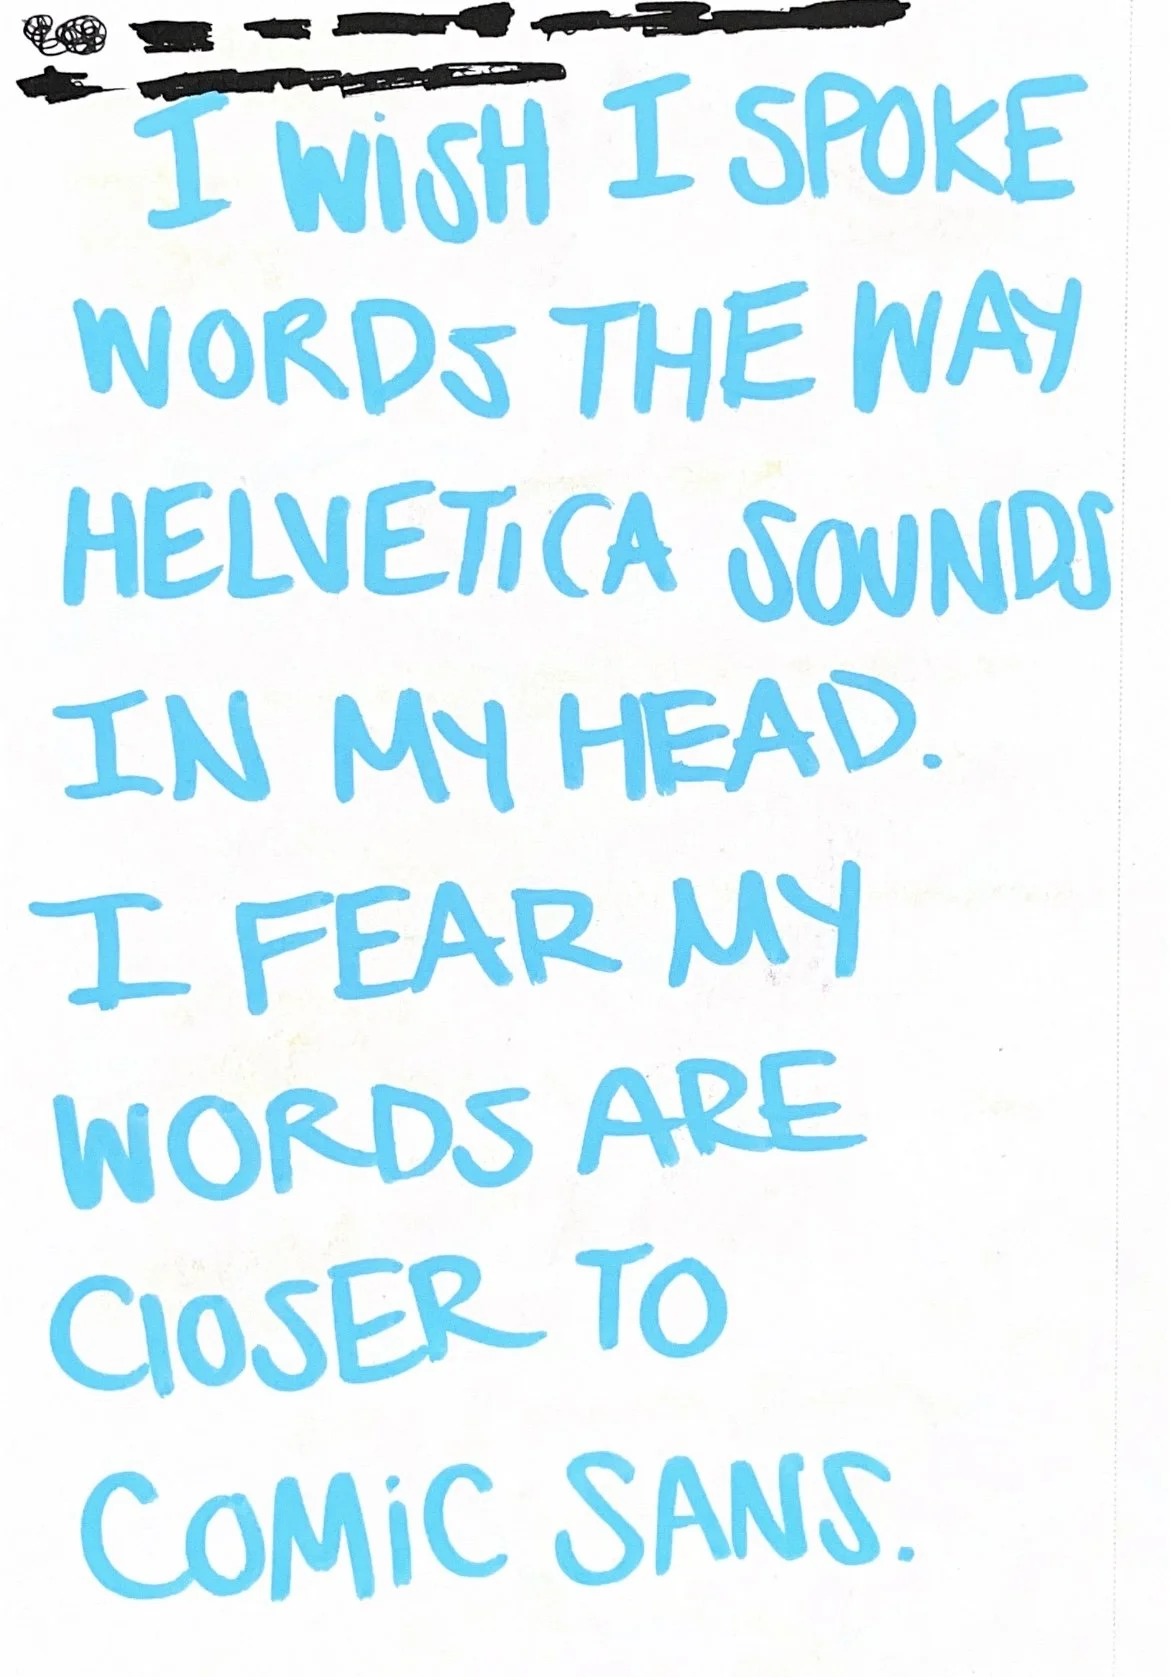 I WiSH I SPOKE
WORDS THE WAY
HELVETiCA SOUNDS
IN MY HEAD.
I FEAR MY
WORDS ARE
ClOSER TO
COMiC SANS.